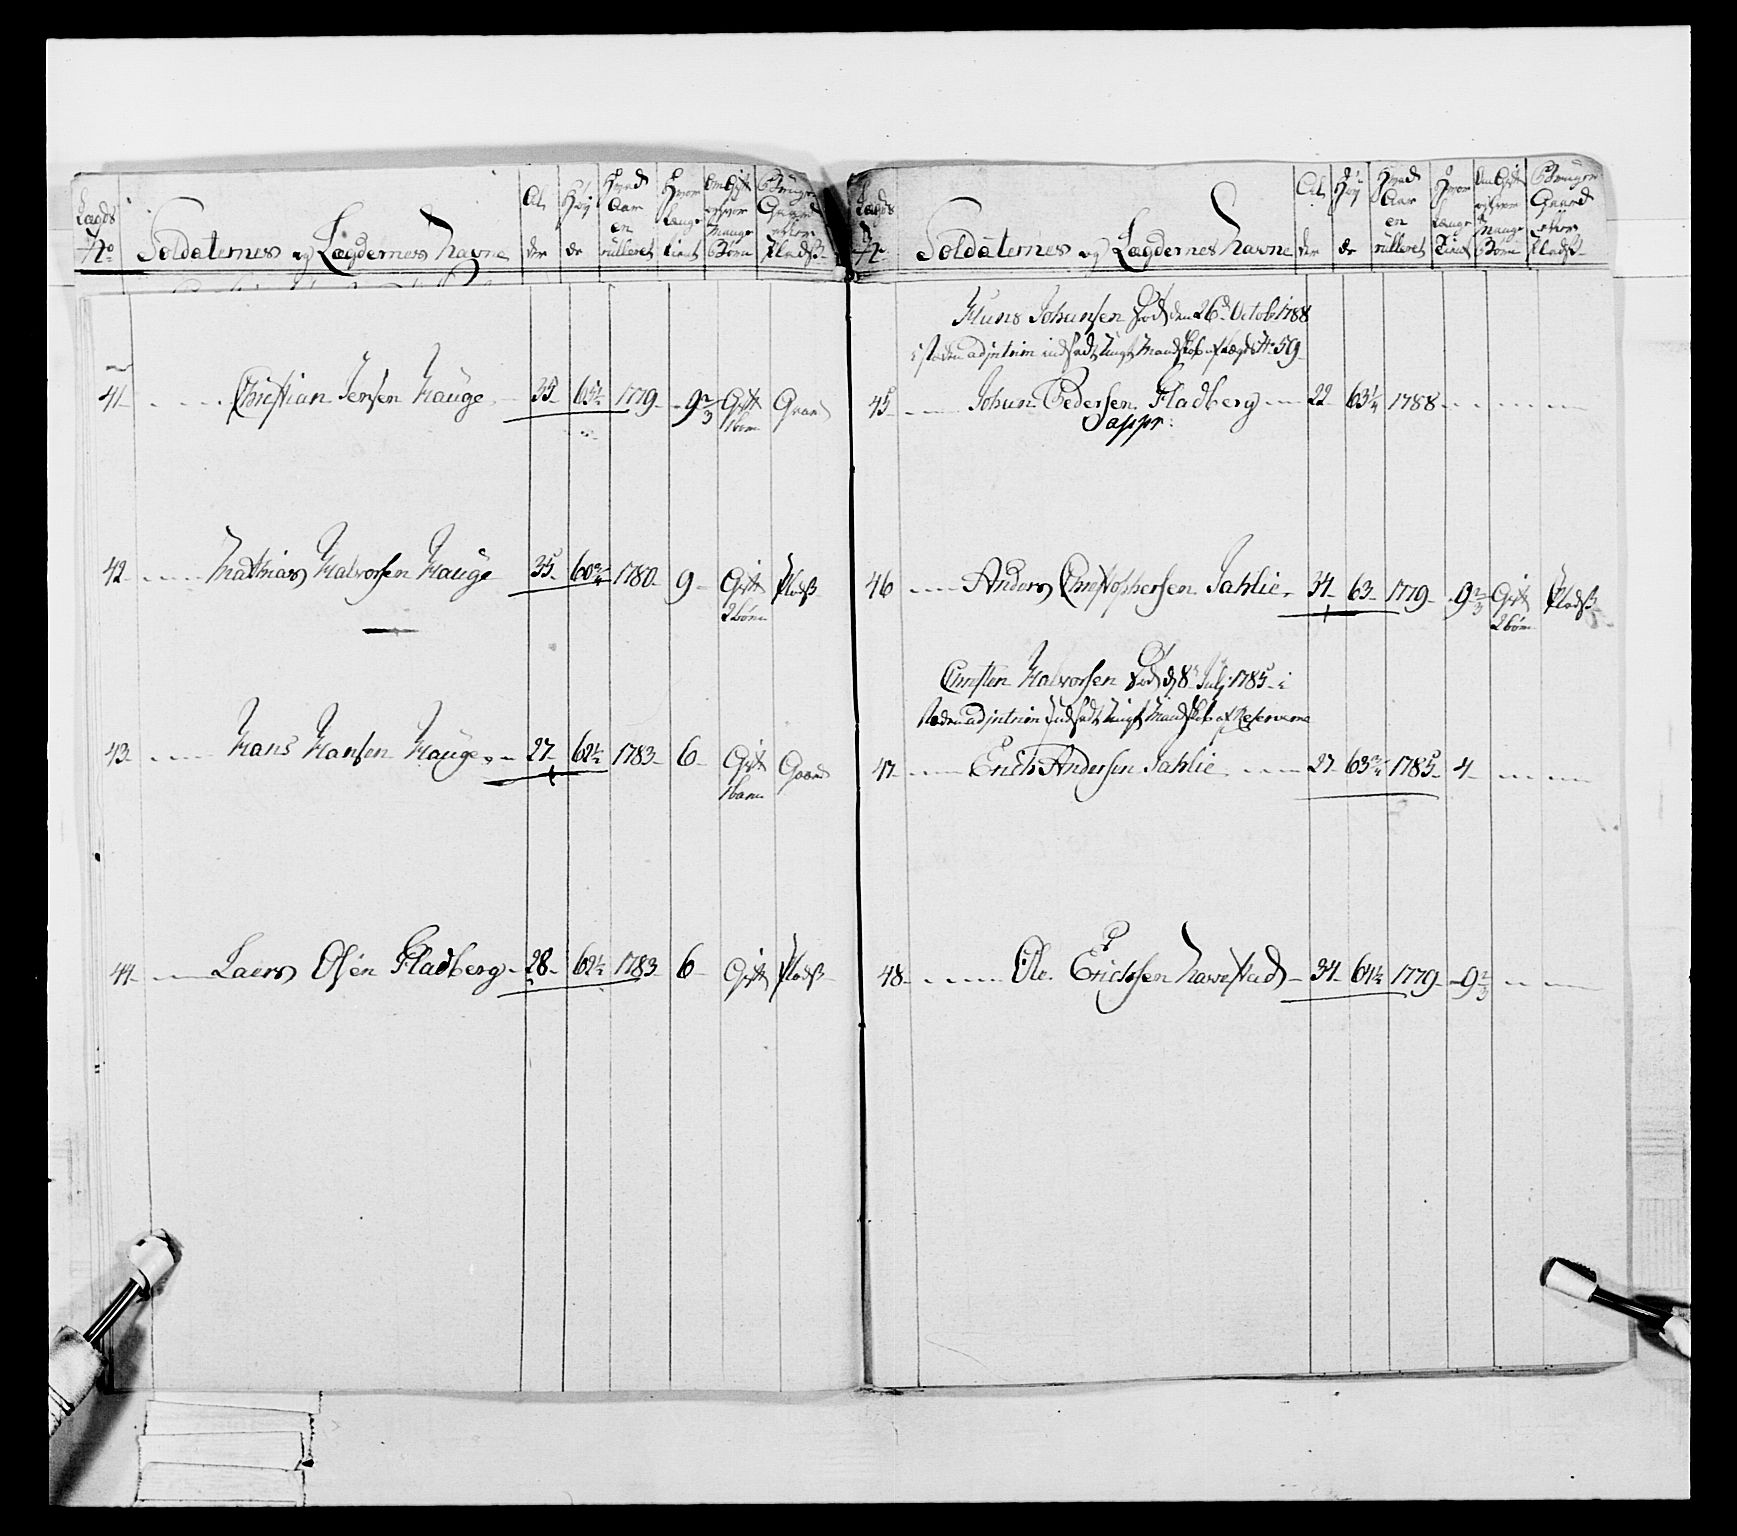 Lægds No Soldaternes og Lægdernes Navne Alder Høyde Hvad Aar enrulleret Hvor længe tient Om Gift og hvor mange Børn Bruger Gaard eller Pladß
41 Christian Jensen Hauge 35 65½ 1779 9⅔ Gift 1 barn Gaard
42 Mathias Halvorsen Hauge 35 60¾ 1780 9 Gift 2 börn Pladß
43 Hans Hansen Hauge 27 62½ 1783 6 Gift 1 barn Gaard
44 Laers Olsen Fladberg 28 62½ 1783 6 Gift Pladß
Lægds No Soldaternes og Lægdernes Navne Alder Høyde Hvad Aar enrulleret Hvor længe tient Om Gift og hvor mange Børn Bruger Gaard eller Pladß
Hans Johansen Död den 26d Octob 1788
i steden ad jnterim indsadt ungt Mandskab af Lægd No 59
45 Johan Pedersen Fladberg 22 63¼ 1788
Sappr:
46 Anders Christophersen Sahlie 34 63 1779 9⅔ Gift 2 börn Pladß
Christen Halvorsen Död d 8 Julj 1785 i
steden ad jnterim Jndsadt ungt Mandskab af Reserverne
47 Erich Andersen Sahlie 27 63¾ 1785 4
48 Ole Erichsen Navestad 34 64½ 1779 9⅔